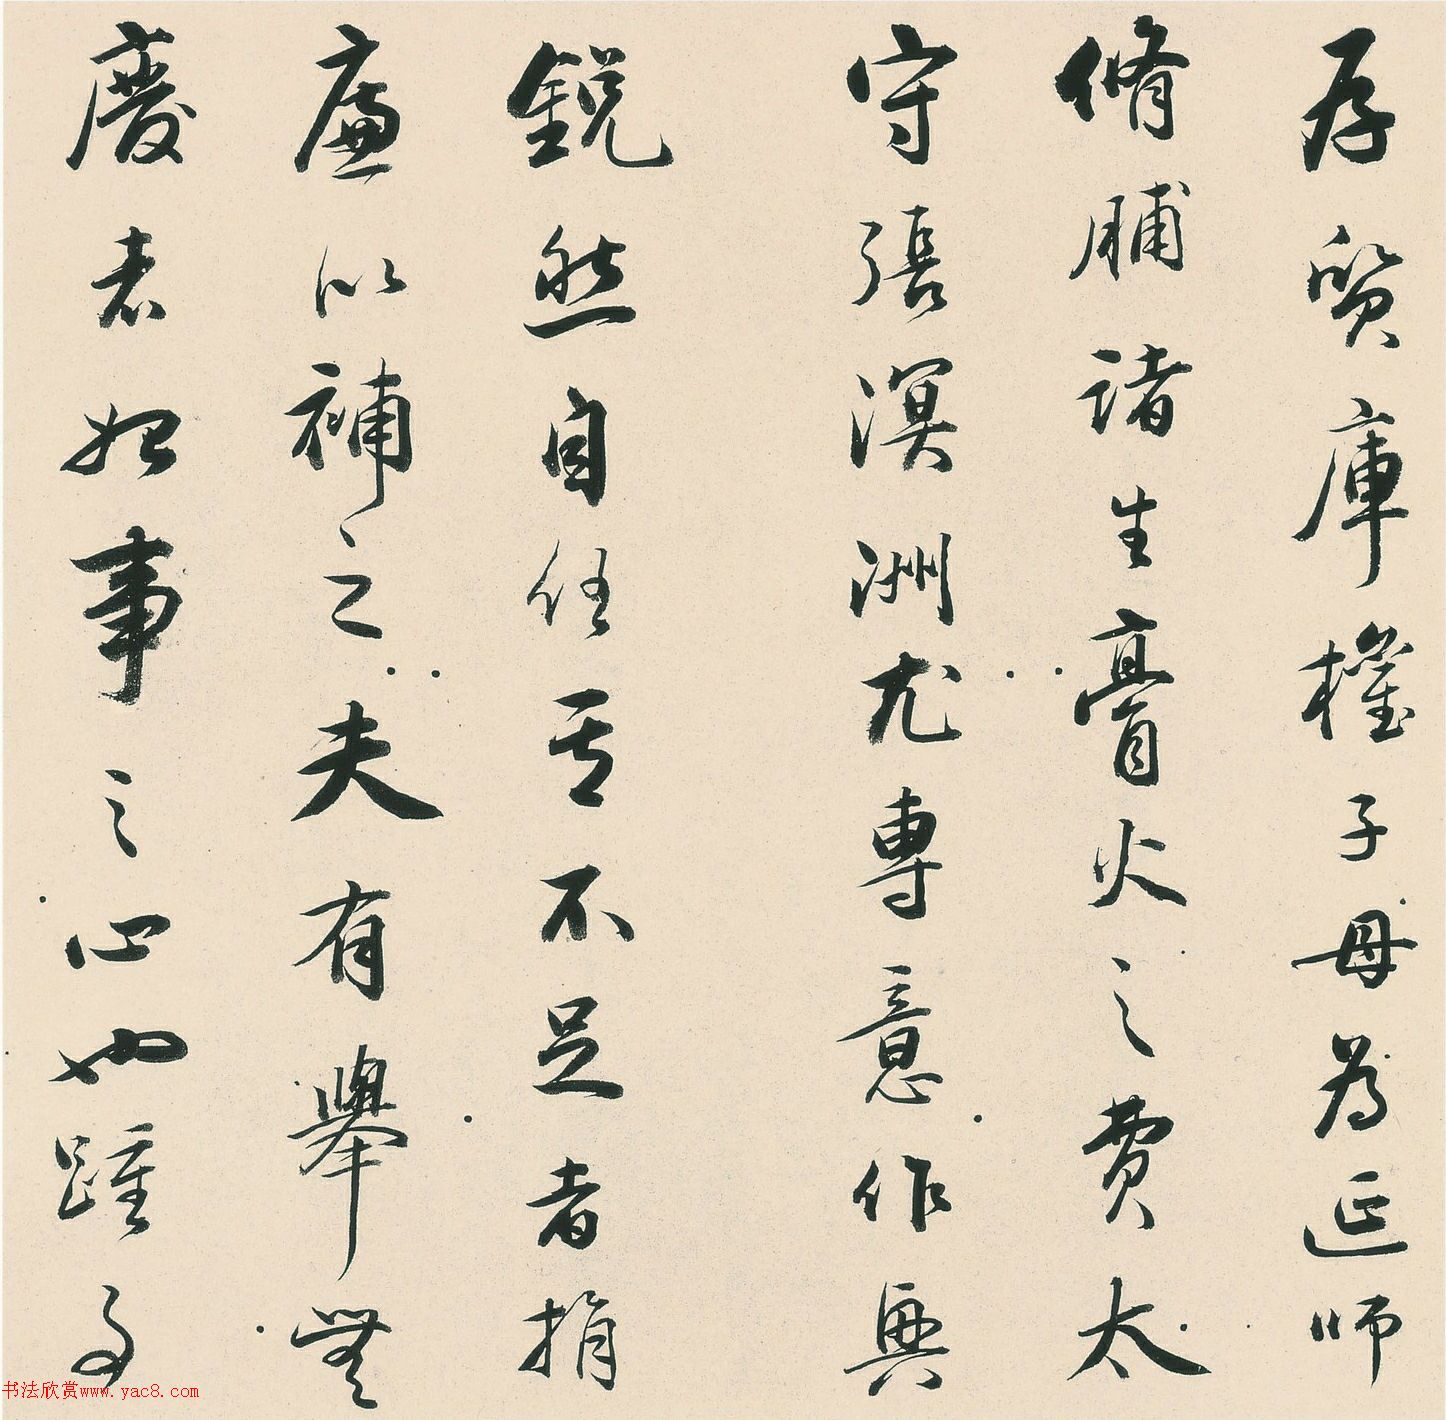 存質庫權子母為延師
脩脯諸生膏火之費太
守張溟洲尤專意作興
銳然自任其不足者捐
廉以補之夫有舉無
廢者始事之心也踵事
书法欣赏www.yac8.com